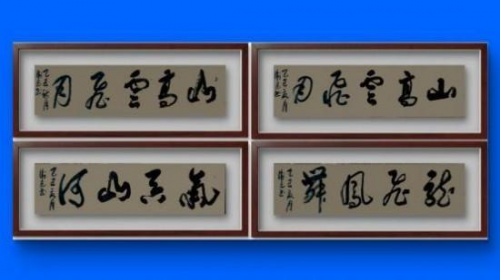 山高雲飛月
山高雲飛月
氣吞山河
龍飛鳳舞